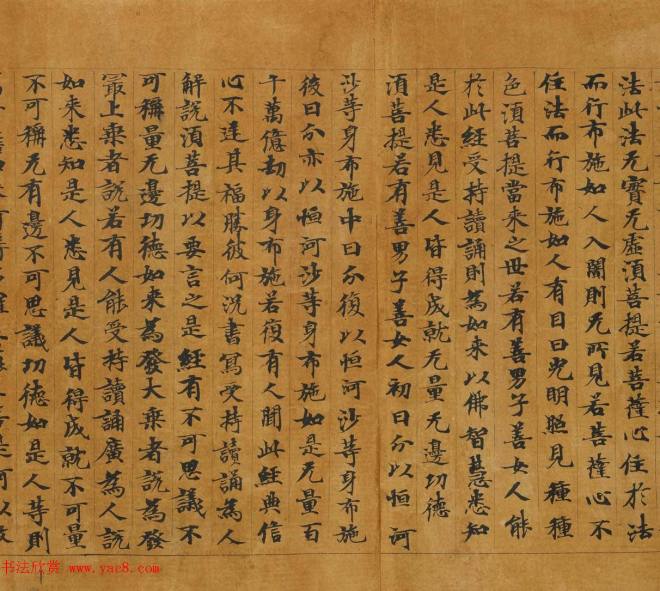 法此法无實无虛須菩提若菩薩心住於法
而行布施如人入闇則无所見若菩薩心不
住法而行布施如人有目日光明照見種種
色須菩提當来之世若有善男子善女人能
於此經受持讀誦則為如来以佛智慧悉知
是人悉見是人皆得成就无量无邊功德
須菩提若有善男子善女人初日分以恒河
沙等身布施中日分復以恒河沙等身布施
後日分亦以恒河沙等身布施如是无量百
千萬億劫以身布施若復有人聞此經典信
心不逆其福勝彼何況書寫受持讀誦為人
解說須菩提以要言之是經有不可思議不
可稱量无邊功德如来為發大乘者說為發
最上乘者說若有人能受持讀誦廣為人說
如来悉知是人悉見是人皆得成就不可量
不可稱无有邊不可思議功德如是人等則
书法欣赏 www.yac8.com